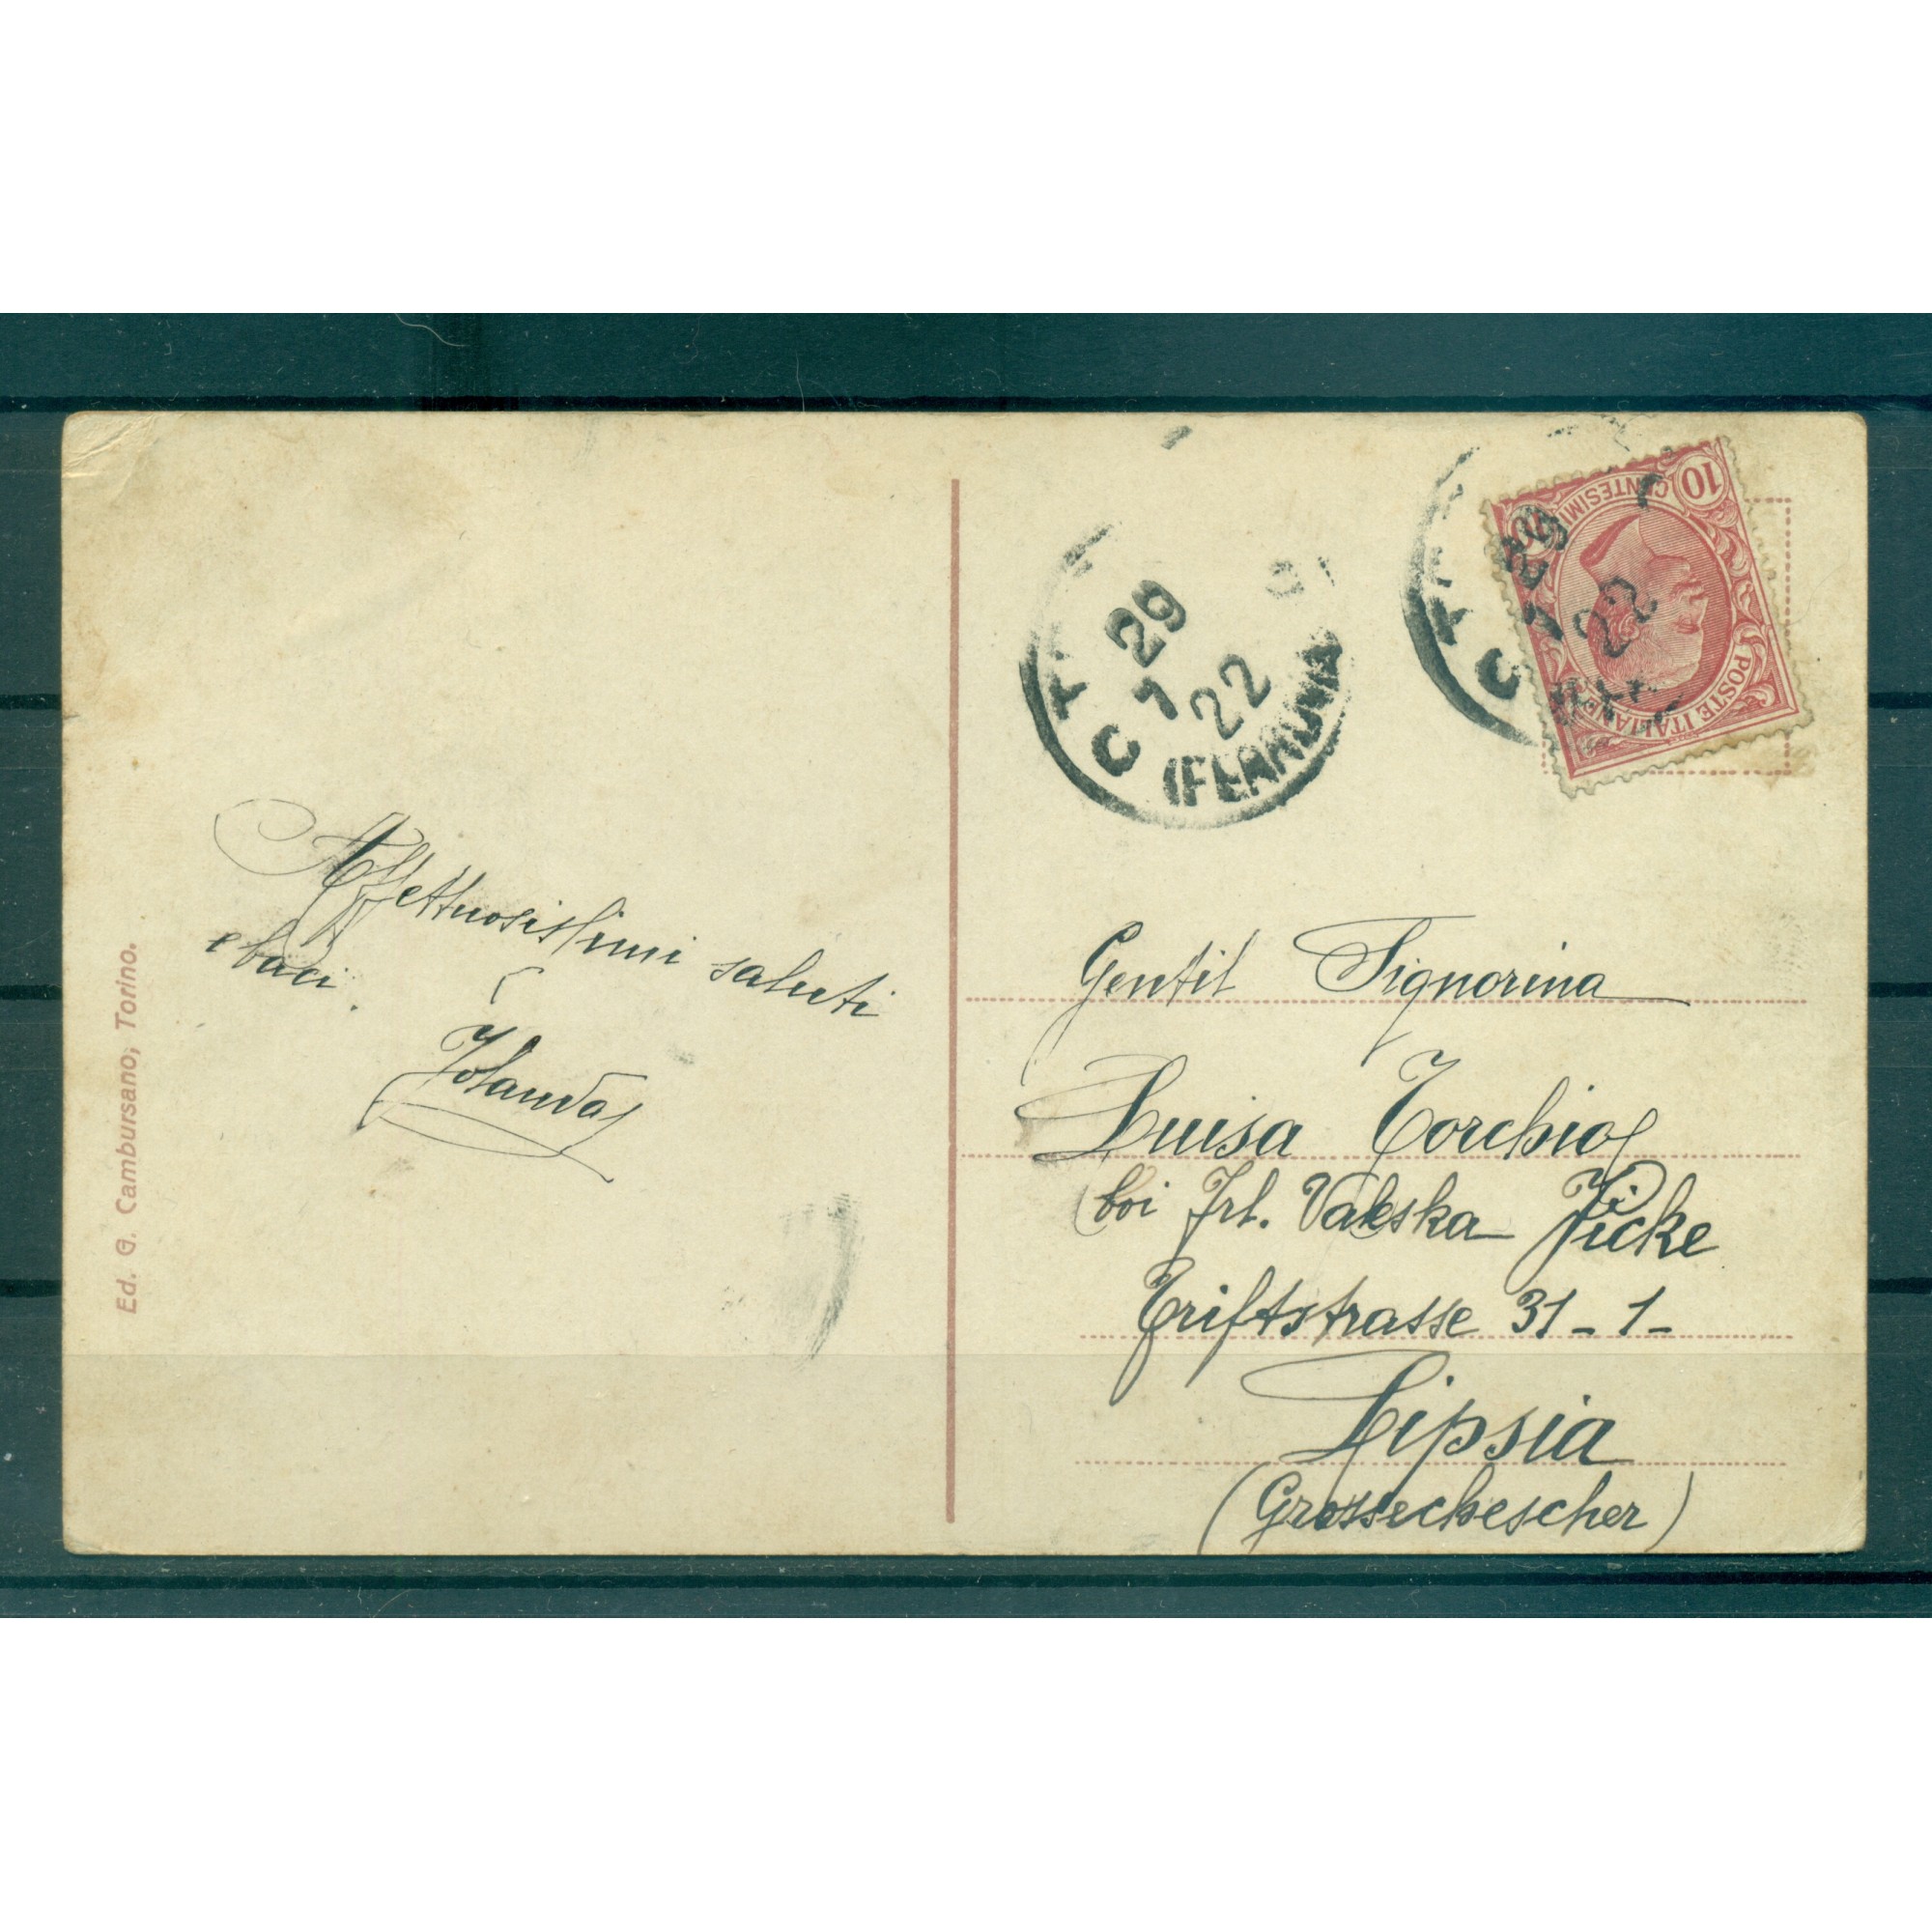 Affettuosissimi saluti
e baci.
Iolanda
Ed. G. Cambursano, Torino.
29
1
22
(FERROVIA
10
CENTESIMI
POSTE ITALIANE
29
1
22
Gentil Signorina
Luisa Torchio
bei Frl. Valeska
Triftstrasse 31-1-
Lipsia
(Grosszschocher)